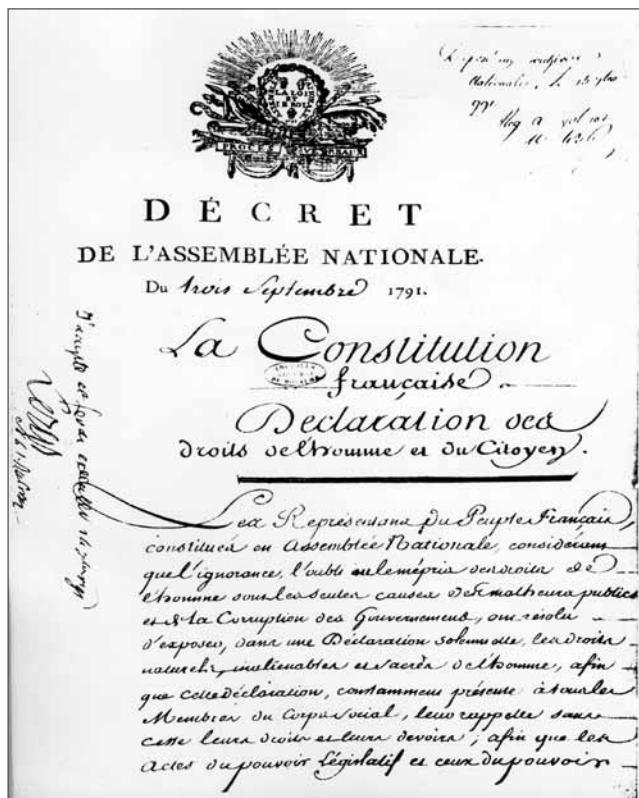 archives
nationales, le
LA LOI
ET
LE ROI
DÉCRET
DE L'ASSEMBLÉE NATIONALE.
Du trois Septembre 1791.
La Constitution
française
Déclaration des
droits de l'homme et du Citoyen.
Les Représentans du Peuple Français,
constitués en Assemblée Nationale, considérant
que l'ignorance, l'oubli ou le mépris des droits de
l'homme sont les seules causes des malheurs publics
et de la Corruption des Gouvernemens, ont résolu
d'exposer, dans une Déclaration solemnelle, les droits
naturels, inaliénables et sacrés de l'homme, afin
que cette déclaration, constamment présente à tous les
Membres du Corps social, leur rappelle sans
cesse leurs droits et leurs devoirs ; afin que les
Actes du pouvoir Législatif et ceux du pouvoir
J'accepte et ferai exécuter